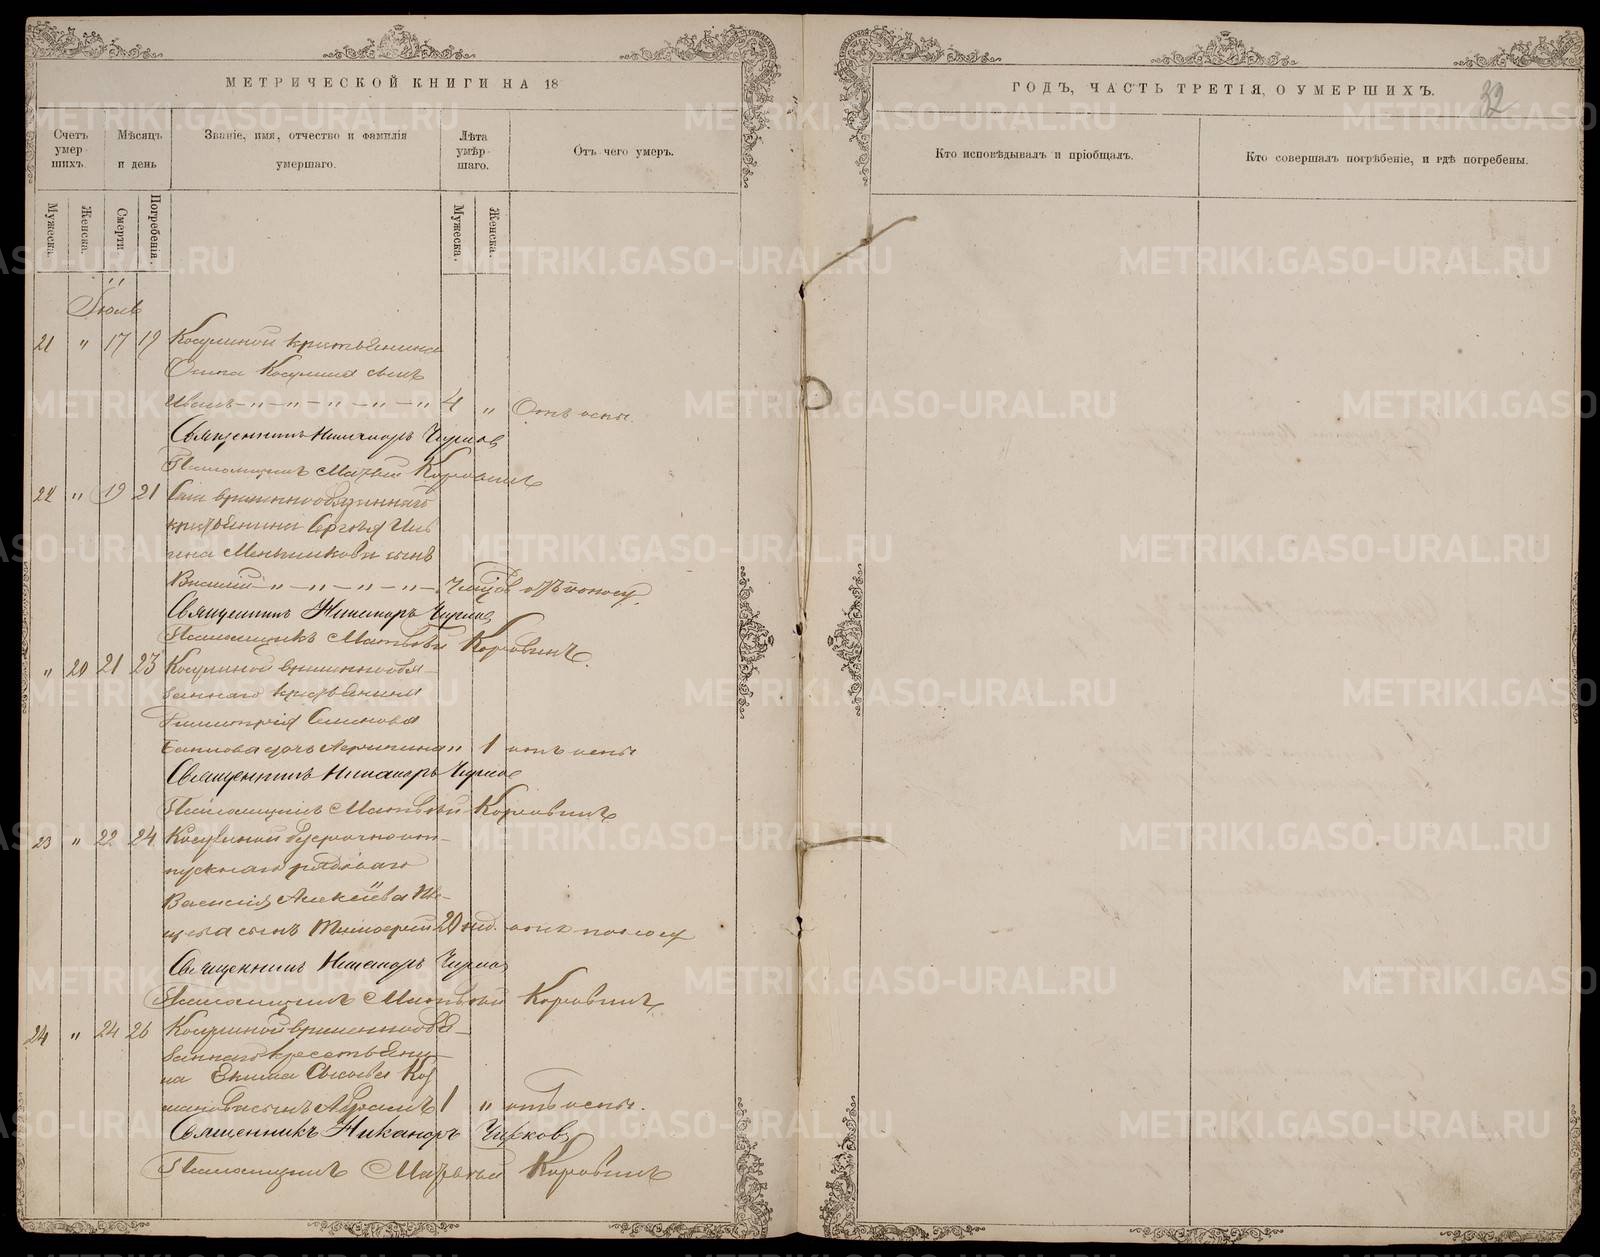 МЕТРИЧЕСКОЙ КНИГИ НА 18
Счетъ умер шихъ.
Мѣсяцъ и день
Званіе, имя, отчество и фамилія умершаго.
Лѣта умер шаго.
Отъ чего умеръ.
Мужеска.
Женска.
Смерти
Погребенія.
Мужеска.
Женска.
Іюль
21 " 17 19 Косулиной крестьянина
Осипа сынъ
Иванъ - " - " - " - " - " 4 " Отъ оспы.
Священникъ Никаноръ Чирков
Псаломщикъ Матвей Коровинъ
22 " 19 21 временнообязаннаго
крестьянина Сергѣя
Меньшикова сынъ
Василій - " - " - " - " - поносу.
Священникъ Никаноръ Чирков
Псаломщикъ Матвѣй Коровинъ.
" 20 21 23 Косулиной временнообя-
заннаго крестьянина
Димитрія Семенова
дочь Агрипина " 1 отъ оспы
Священникъ Никаноръ Чирков
Псаломщикъ Матвѣй Коровинъ
23 " 22 24 Косулиной безсрочноот-
пускнаго рядоваго
Василія Алексѣева
сынъ Тимофей 20 нед. отъ поносу
Священникъ Никаноръ Чирков
Псаломщикъ Матвѣй Коровинъ
24 " 24 26 Косулиной временнообя-
заннаго крестьяни-
на Екима Сысоева
сынъ Абрамъ 1 " отъ оспы.
Священникъ Никаноръ Чирков
Псаломщикъ Матвѣй Коровинъ
ГОДЪ, ЧАСТЬ ТРЕТІЯ, О УМЕРШИХЪ.
32
Кто исповѣдывалъ и пріобщалъ.
Кто совершалъ погребеніе, и гдѣ погребены.
METRIKI.GASO-URAL.RU